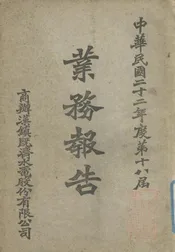 中華民國二十二年度第十八屆
業務報告
商辦漢鎮既濟水電股份有限公司